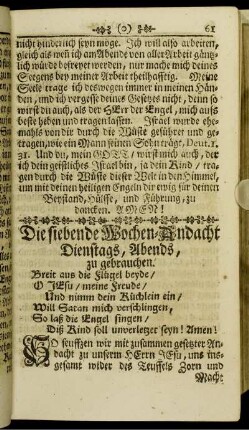 (o) 61
nicht hinderlich seyn möge. Ich will also arbeiten,
gleich als wenn ich am Abend von aller Arbeit gäntz-
lich würde befreyet werden, nur mache mich deines
Seegens bey meiner Arbeit theilhafftig. Meine
Seele trage ich deswegen immer in meinen Hän-
den, und ich vergesse deines Gesetzes nicht, denn so
wirst du auch, als der HErr der Engel, mich aufs
beste heben und tragen lassen. Israel wurde ehe-
mahls von dir durch die Wüste geführet und ge-
tragen, wie ein Mann seinen Sohn trägt, Deut. 1.
31. Und du, mein GOtt/ wirst mich auch, der
ich dein geistliches Israel bin, ja dein Kind, tra-
gen durch die Wüste dieser Welt in den Himmel,
um mit deinen heiligen Engeln dir ewig für deinen
Beystand, Hülffe, und Führung, zu
dancken. AMEN!
Die siebende Wochen-Andacht
Dienstags, Abends,
zu gebrauchen.
Breit aus die Flügel beyde/
O JEsu/ meine Freude/
Und nimm dein Küchlein ein/
Will Satan mich verschlingen,
So laß die Engel singen/
Diß Kind soll unverletzet seyn! Amen!
SO seuffzen wir mit zusammen gesetzter An-
dacht zu unserm HErrn JEsu, uns ins-
gesamt wider des Teuffels Zorn und
Mach-